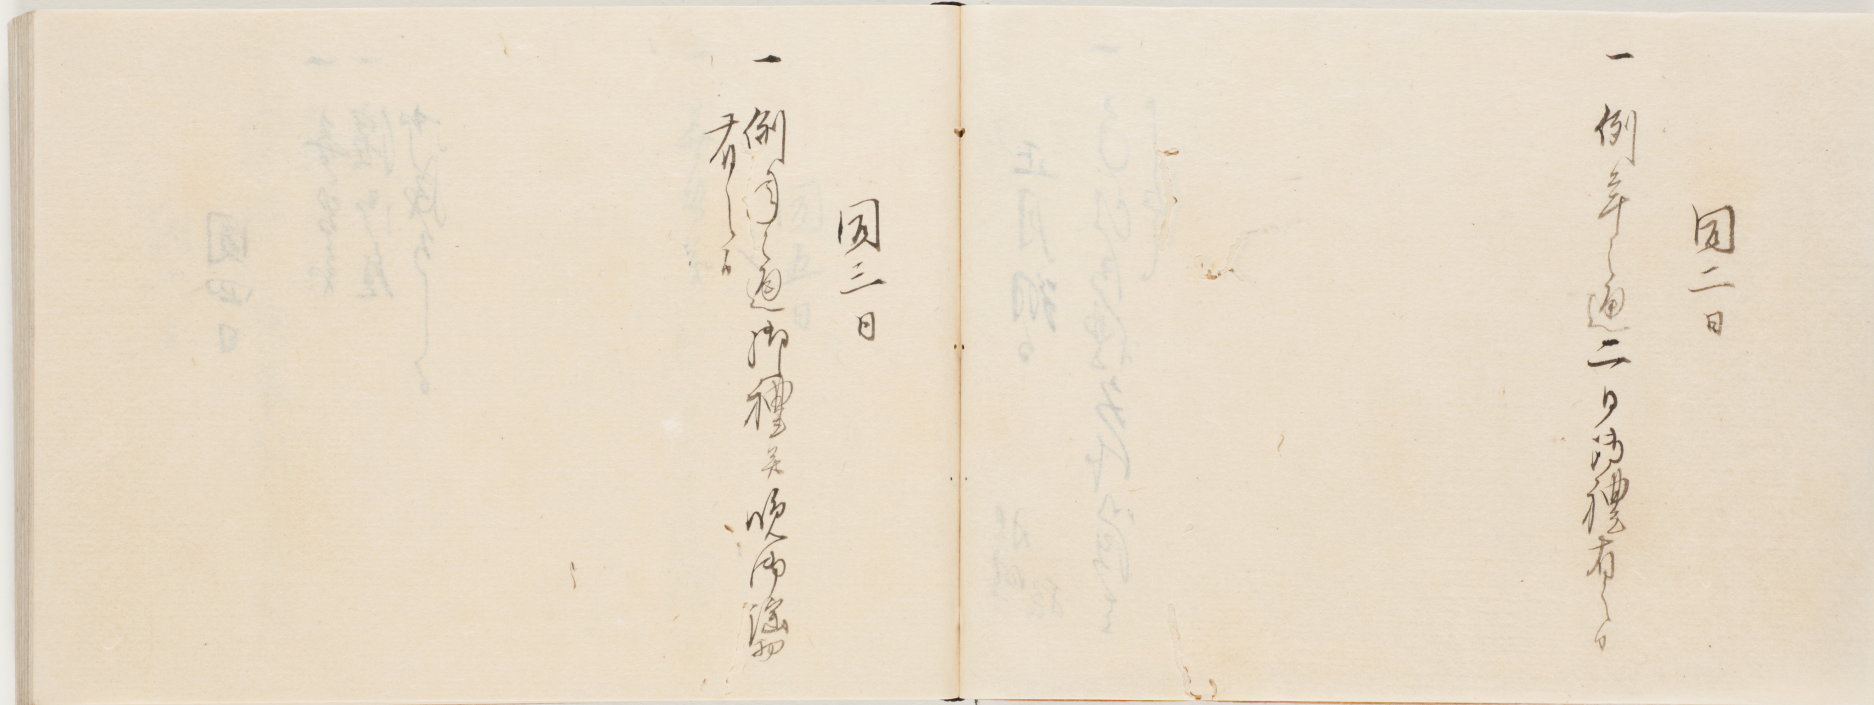 同二日
一 例年之通二日御禮有之
同三日
一 例年之通御禮并晩御謡初
有之